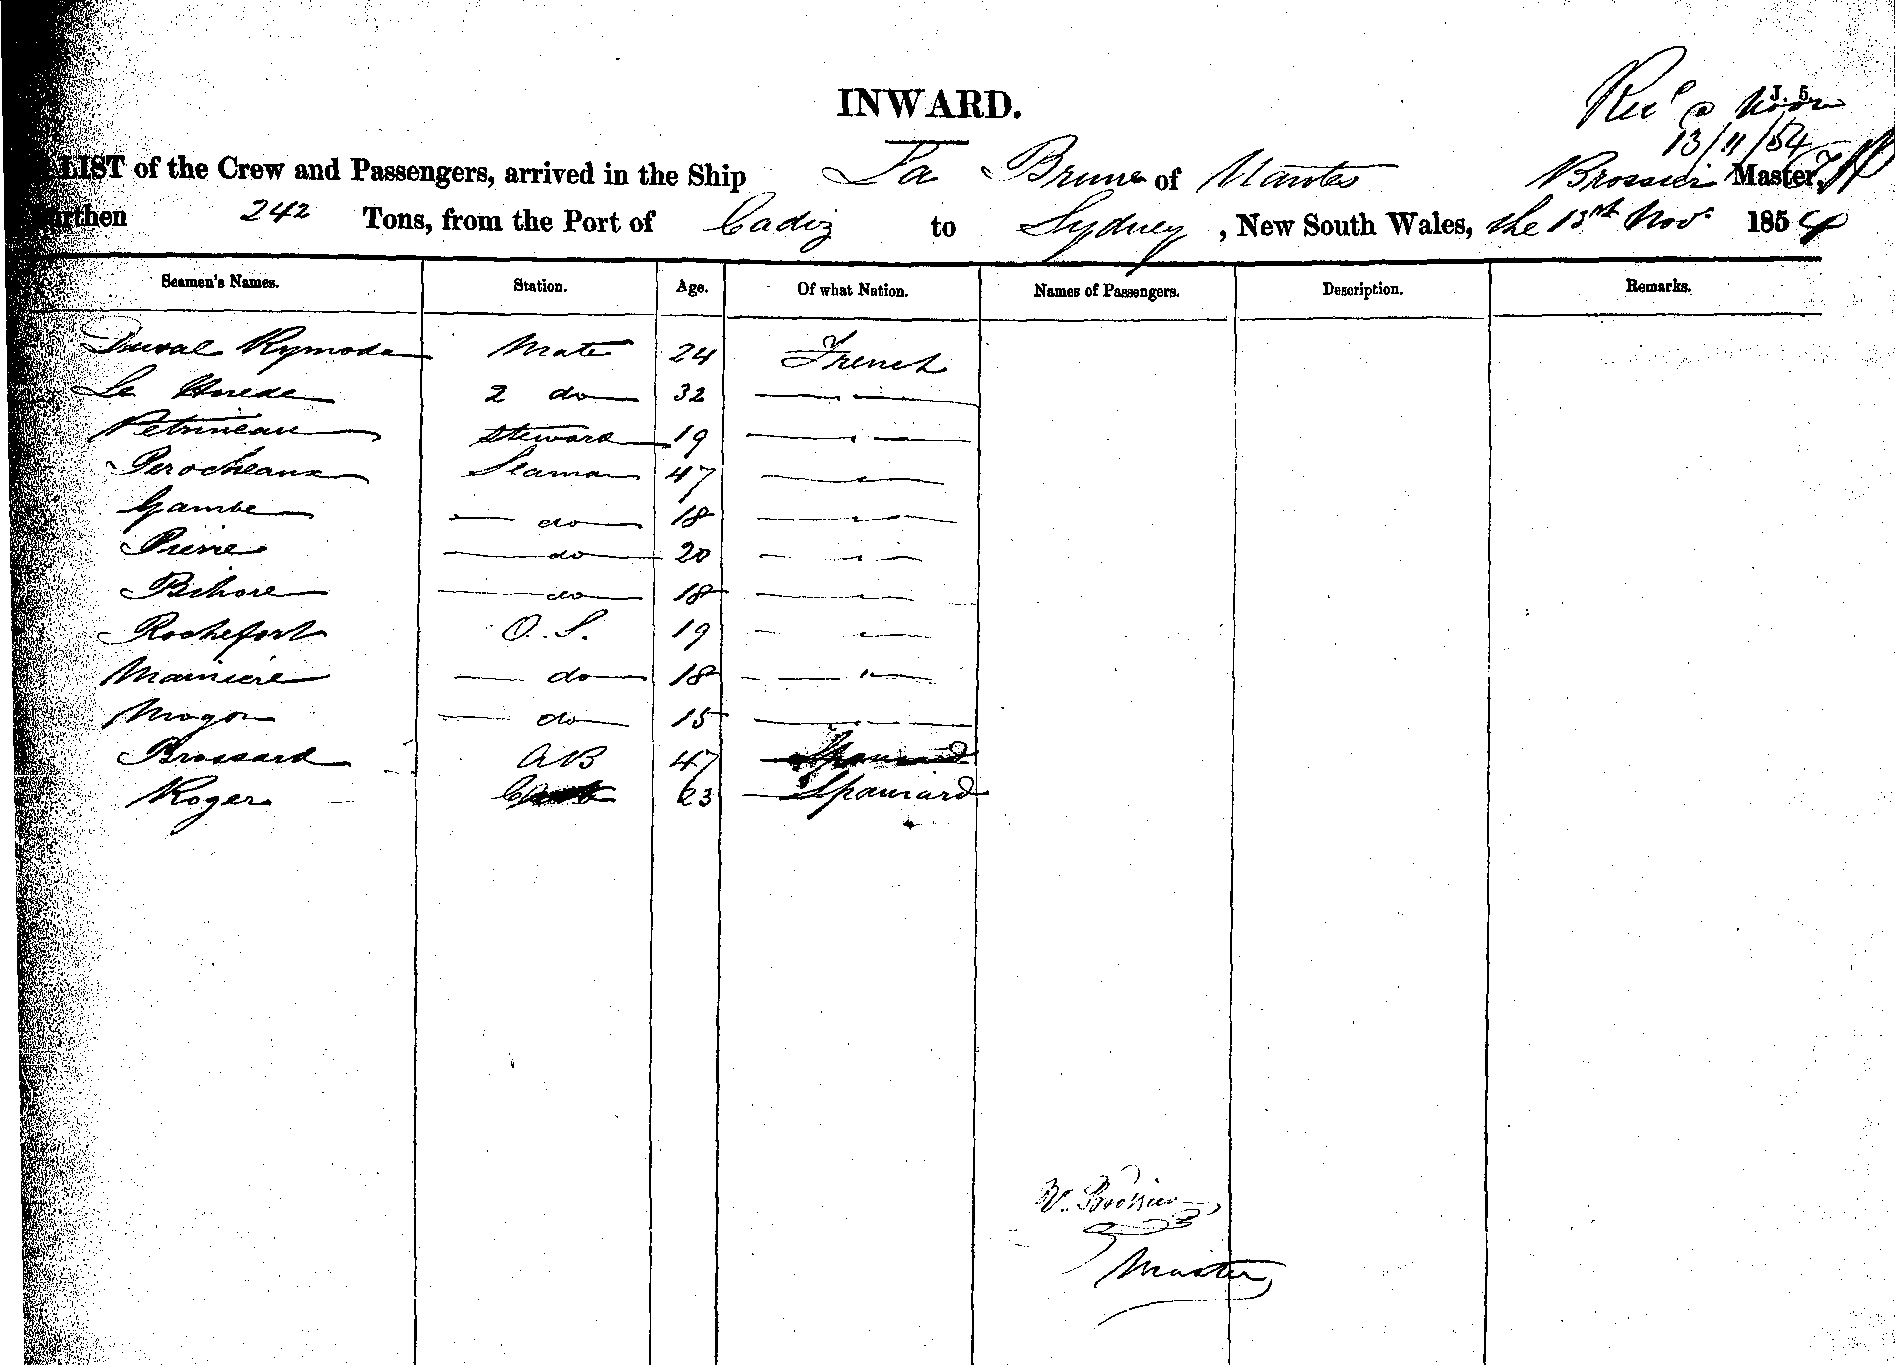 J. 5.
INWARD.
Recd @ Noon
13/11/54
LIST of the Crew and Passengers, arrived in the Ship La Brune of Nantes Brossier Master,
urthen 242 Tons, from the Port of Cadiz to Sydney, New South Wales, the 13th Novr 1854
Seamen's Names. Station. Age. Of what Nation. Names of Passengers. Description. Remarks.
Duval Rymoda Mate 24 French
Le Huede 2 do 32 — " —
Petrineau Steward 19 — " —
Perocheaux Seaman 47 — " —
Gambe — do 18 — " —
Pierre — do 20 — " —
Bihore — do 18 — " —
Rochefort O.S. 19 — " —
Mainiere — do 18 — " —
Magon — do 15 — " —
Brossard AB 47 Spaniard
Roger 23 Spaniard
Brossier
Master